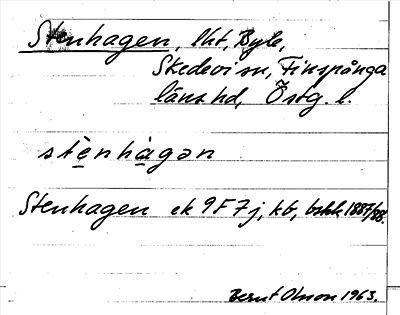 Stenhagen, lht, Byle,
Skedevi sn, Finspånga
läns hd, Östg. l.
stènhàgən
Stenhagen ek 9F7j, kb, bshk 1887/88.
Bernt Olsson 1963.